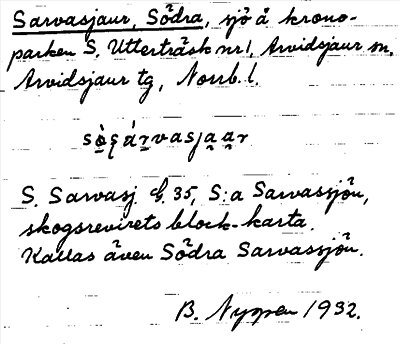 Sarvasjaur, Södra, sjö å krono-
parken S. Utterträsk nr 1, Arvidsjaur sn,
Arvidsjaur tg, Norrb. l.
S. Sarvasj. 35, S:a Sarvassjön,
skogsrevirets block-karta.
Kallas även Södra Sarvassjön.
B. Nyman 1932.